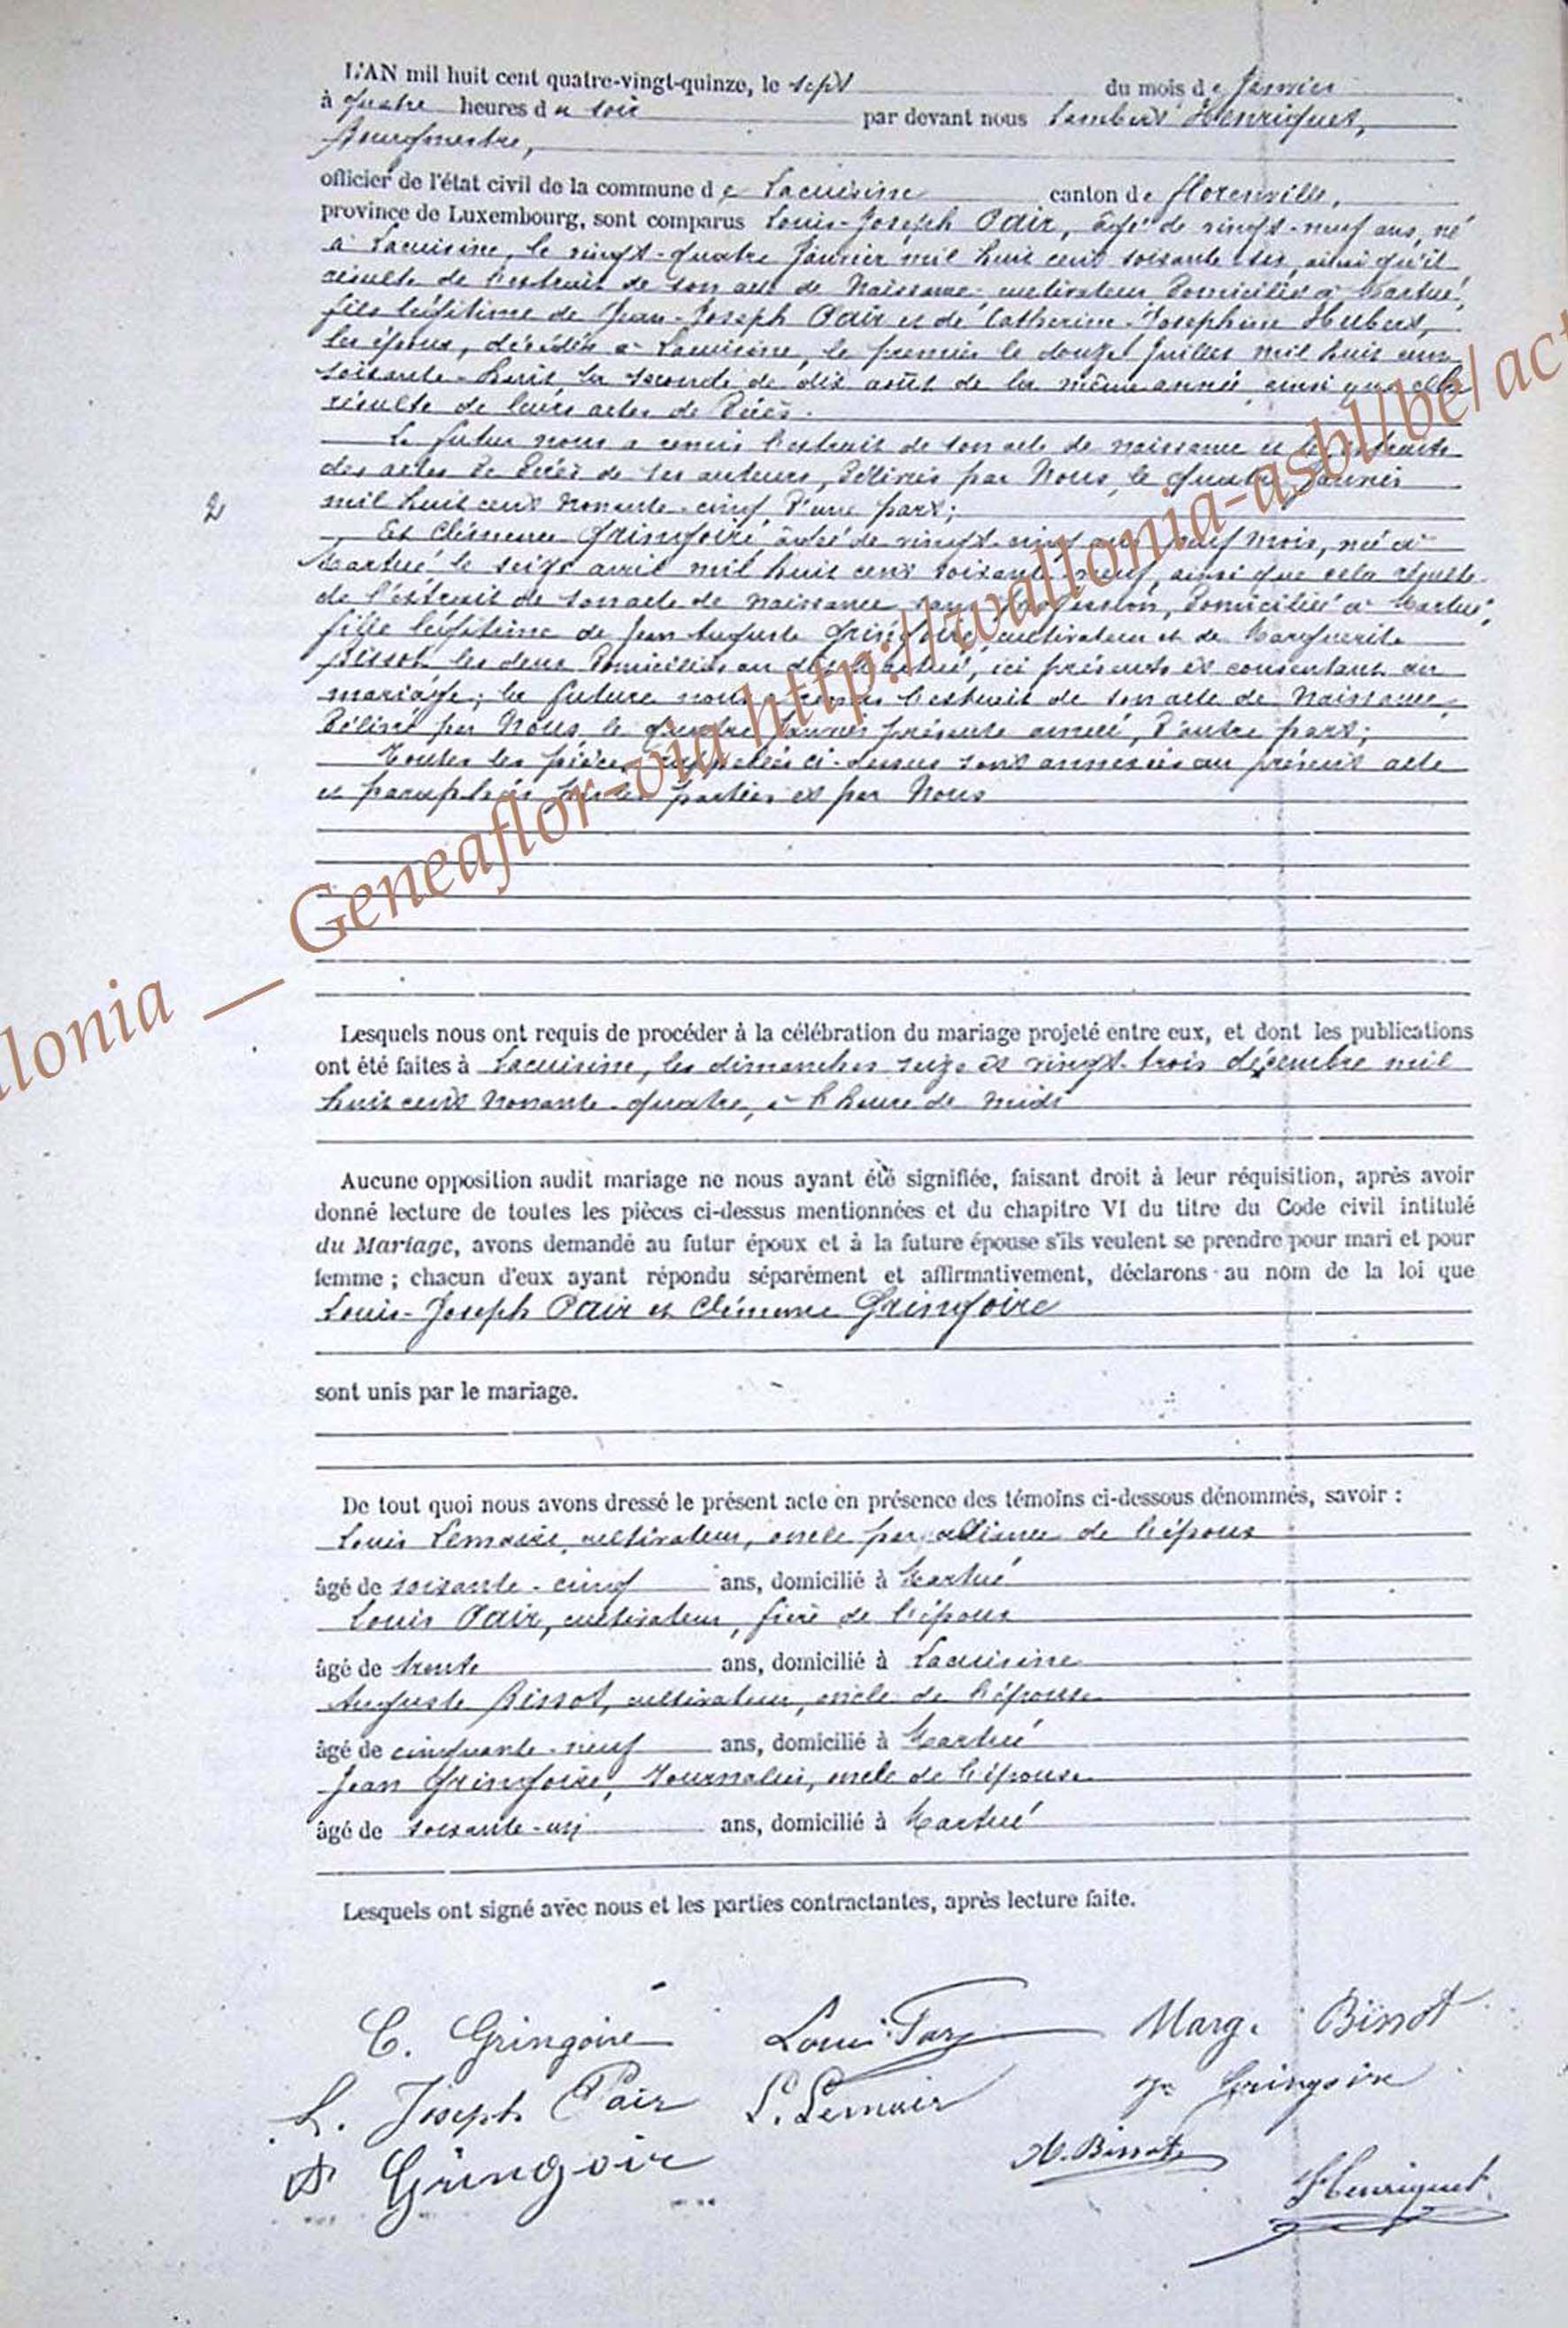 L'AN mil huit cent quatre-vingt-quinze, le sept du mois de Janvier
à quatre heures du soir par devant nous Lambert Henriquet,
Bourgmestre,
officier de l'état civil de la commune de Lacuisine canton de Florenville,
province de Luxembourg, sont comparus Louis-Joseph Pair, âgé de vingt-neuf ans, né
à Lacuisine, le vingt-quatre Janvier mil huit cent soixante six, ainsi qu'il
résulte de l'extrait de son acte de Naissance, cultivateur domicilié à Martué,
fils légitime de Jean-Joseph Pair et de Catherine-Josephine Hubert,
les époux, décédés à Lacuisine, le premier le douze Juillet mil huit cent
soixante-huit, la seconde, de dix août de la même année, ainsi que cela
résulte de leurs actes de Décès.
Le futur nous a remis l'extrait de son acte de naissance et les extraits
des actes de Décès de ses auteurs, Délivrés par Nous, le quatre Janvier
mil huit cent nonante-cinq D'une part;
2
Et Clémence Gringoire âgée de vingt-cinq ans neuf mois, née à
Martué le seize avril mil huit cent soixante neuf, ainsi que cela résulte
de l'extrait de son acte de naissance sans profession, Domiciliée à Martué,
fille légitime de Jean Auguste Gringoire, cultivateur et de Marguerite
Bissot les deux Domiciliés au dit Martué, ici présents et consentant au
mariage; la future nous remis l'extrait de son acte de Naissance,
Délivré par Nous, le quatre Janvier présente année, D'autre part;
Toutes les pièces rappelées ci-dessus sont annexées au présent acte
et paraphées par les parties et par Nous
Lesquels nous ont requis de procéder à la célébration du mariage projeté entre eux, et dont les publications
ont été faites à Lacuisine, les dimanches seize et vingt-trois décembre mil
huit cent nonante-quatre, à l'heure de midi
Aucune opposition audit mariage ne nous ayant été signifiée, faisant droit à leur réquisition, après avoir
donné lecture de toutes les pièces ci-dessus mentionnées et du chapitre VI du titre du Code civil intitulé
du Mariage, avons demandé au futur époux et à la future épouse s'ils veulent se prendre pour mari et pour
femme ; chacun d'eux ayant répondu séparément et affirmativement, déclarons au nom de la loi que
Louis-Joseph Pair et Clémence Gringoire
sont unis par le mariage.
De tout quoi nous avons dressé le présent acte en présence des témoins ci-dessous dénommés, savoir :
Louis Lemaire, cultivateur, oncle par alliance de l'époux
âgé de soixante-cinq ans, domicilié à Martué
Louis Pair, cultivateur, frère de l'époux
âgé de trente ans, domicilié à Lacuisine
Auguste Bissot, cultivateur, oncle de l'épouse
âgé de cinquante-neuf ans, domicilié à Martué
Jean Gringoire, Journalier, oncle de l'épouse
âgé de soixante-un ans, domicilié à Martué
Lesquels ont signé avec nous et les parties contractantes, après lecture faite.
C. Gringoire Louis Marg. Bissot
L. Joseph Pair L. Lemair Gringoire
Gringoir Bissot
Henriquet
llonia __ Geneaflor-via http://wallonia-asbl/be/act